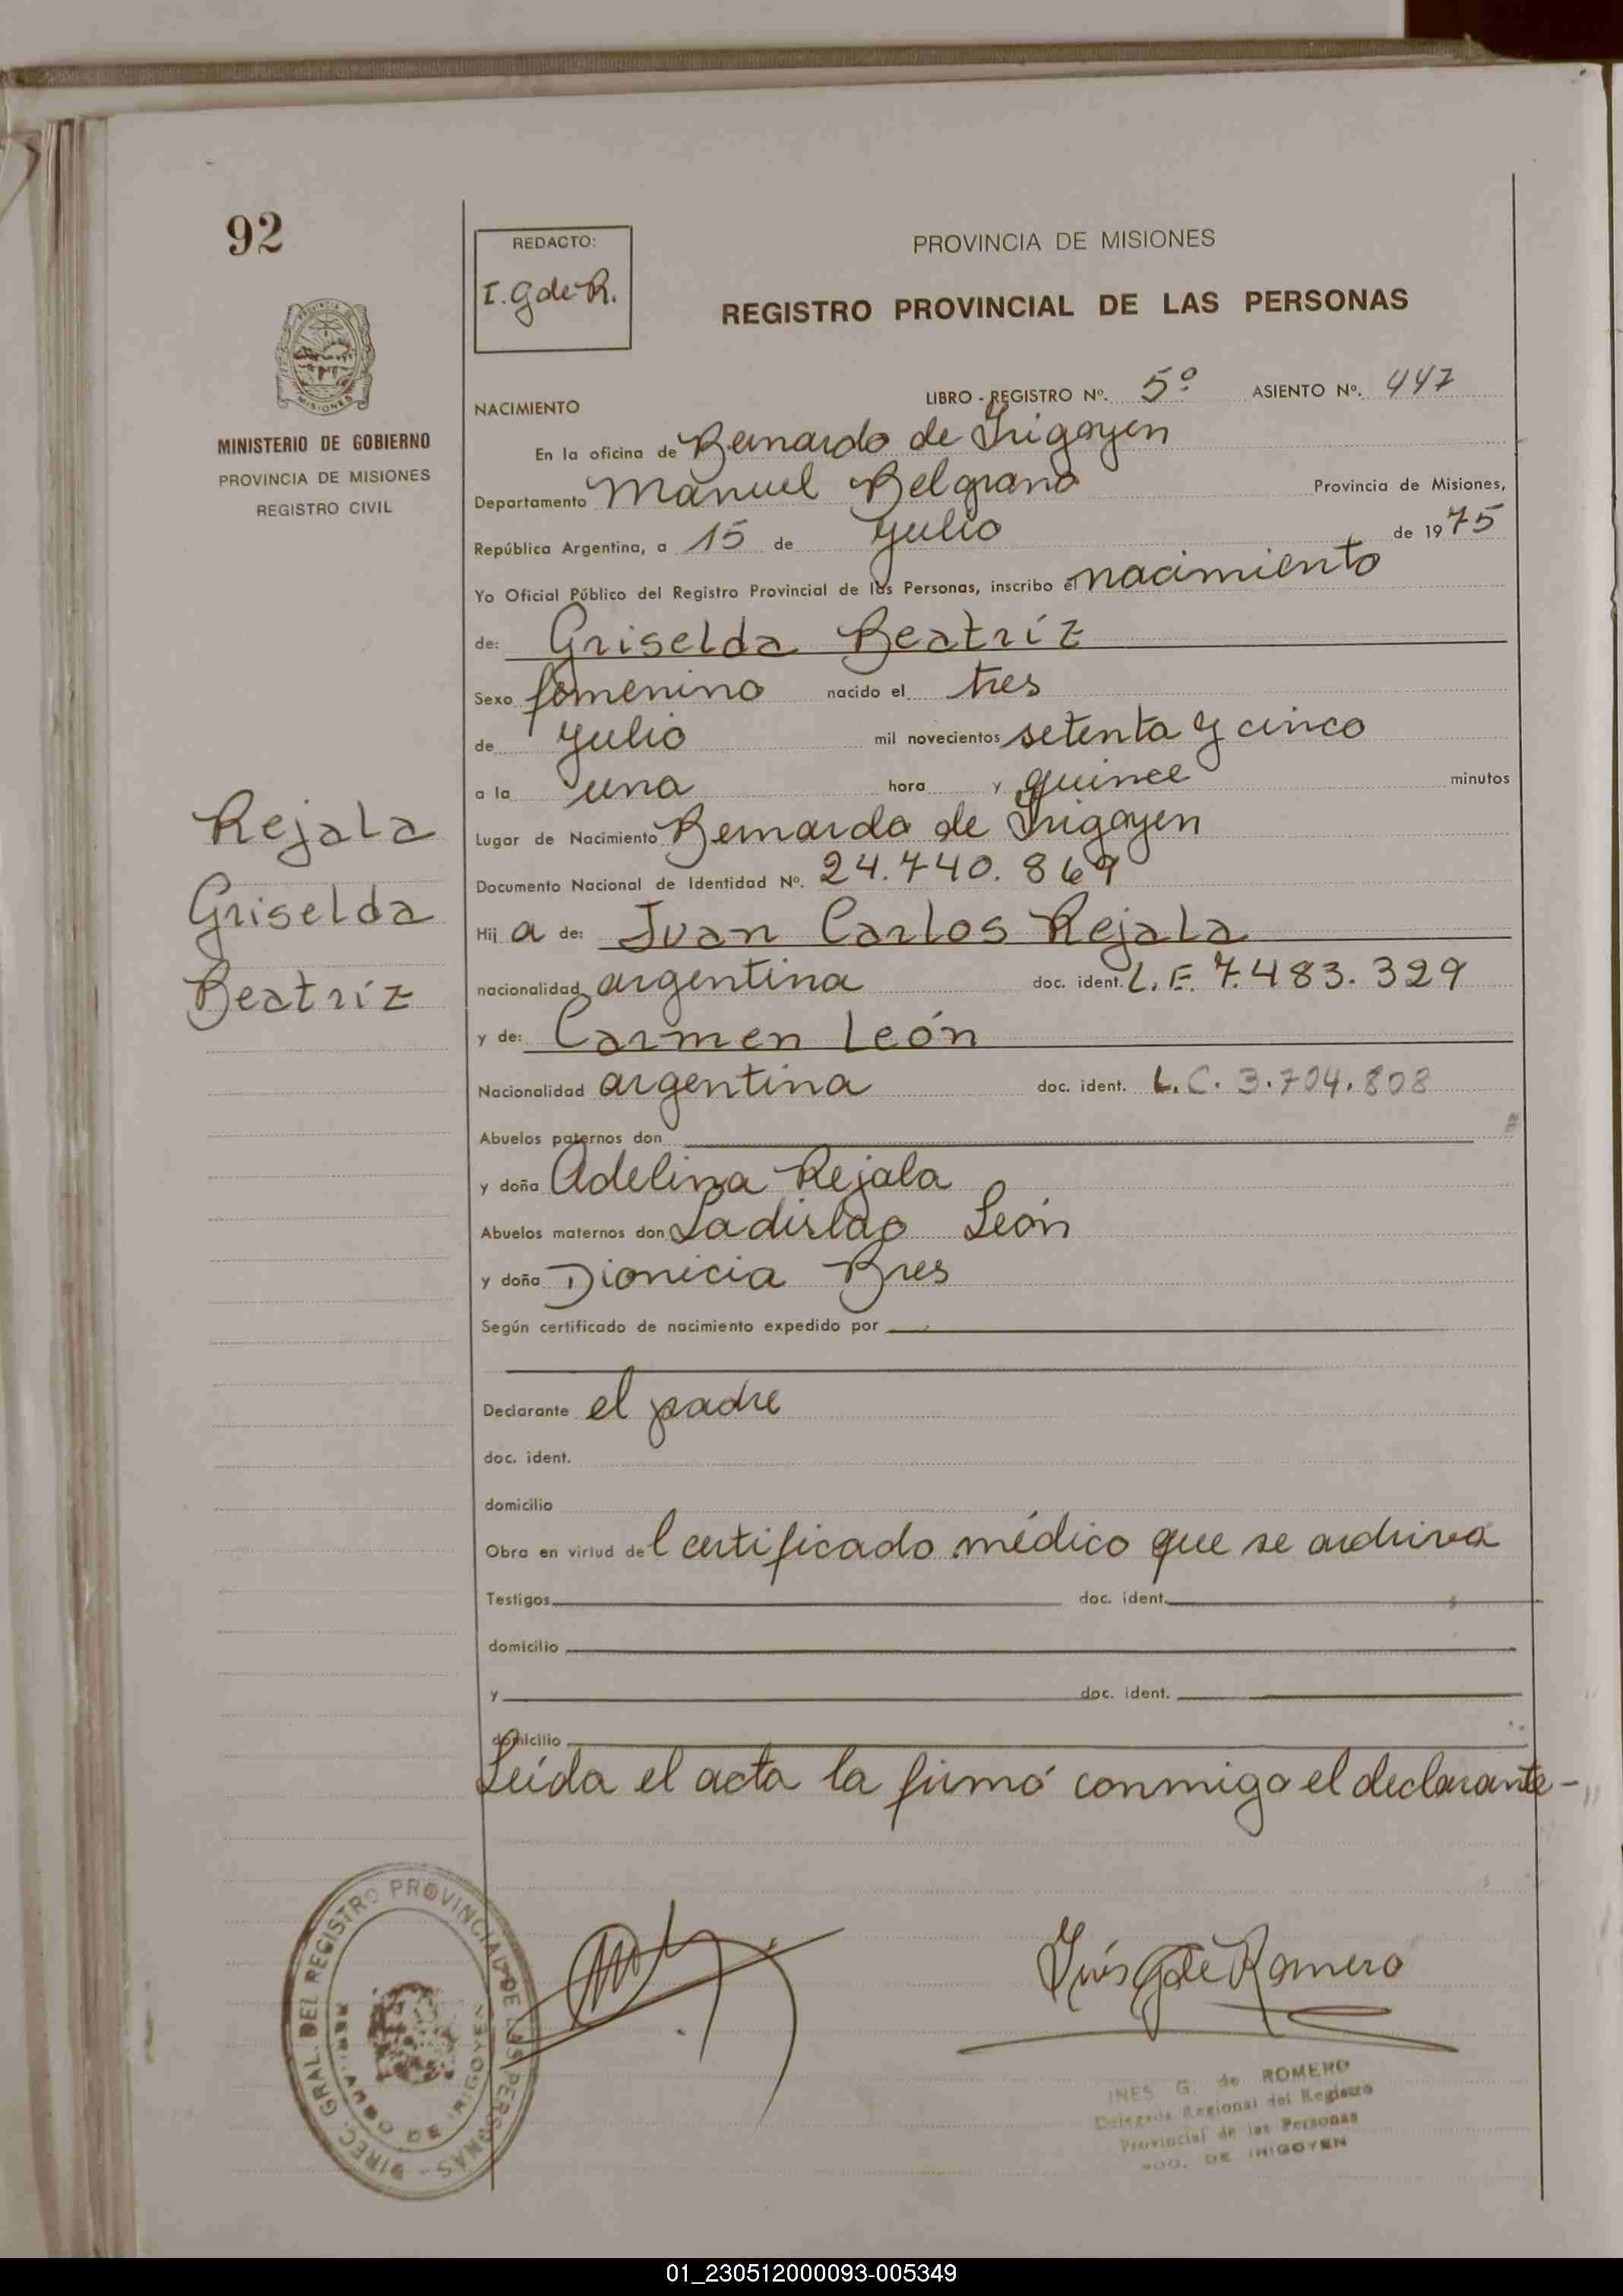 92
REDACTO:
I. G de R.
PROVINCIA DE MISIONES
REGISTRO PROVINCIAL DE LAS PERSONAS
MINISTERIO DE GOBIERNO
PROVINCIA DE MISIONES
REGISTRO CIVIL
LIBRO - REGISTRO Nº. 5º ASIENTO Nº. 447
NACIMIENTO
En la oficina de Bernardo de Irigoyen
Departamento Manuel Belgrano Provincia de Misiones,
República Argentina, a 15 de Julio de 1975
Yo Oficial Público del Registro Provincial de las Personas, inscribo el nacimiento
de: Griselda Beatríz
Sexo femenino nacido el tres
de Julio mil novecientos setenta y cinco
a la una hora y quince minutos
Rejala
Griselda
Beatríz
Lugar de Nacimiento Bernardo de Irigoyen
Documento Nacional de Identidad Nº. 24.740.869
Hij a de: Juan Carlos Rejala
nacionalidad argentina doc. ident. L.E. 7.483.329
y de: Carmen León
Nacionalidad argentina doc. ident. L.C. 3.704.808
Abuelos paternos don
y doña Adelina Rejala
Abuelos maternos don Ladislao León
y doña Dionicia Bres
Según certificado de nacimiento expedido por
Declarante el padre
doc. ident.
domicilio
Obra en virtud del certificado médico que se archiva
Testigos doc. ident.
domicilio
y doc. ident.
domicilio
Leída el acta la firmó conmigo el declarante-
DIREC. GRAL. DEL REGISTRO PROVINCIAL DE LAS PERSONAS
Inés G de Romero
INES G. de ROMERO
Delegada Regional del Registro
Provincial de las Personas
BDO. DE IRIGOYEN
01_230512000093-005349